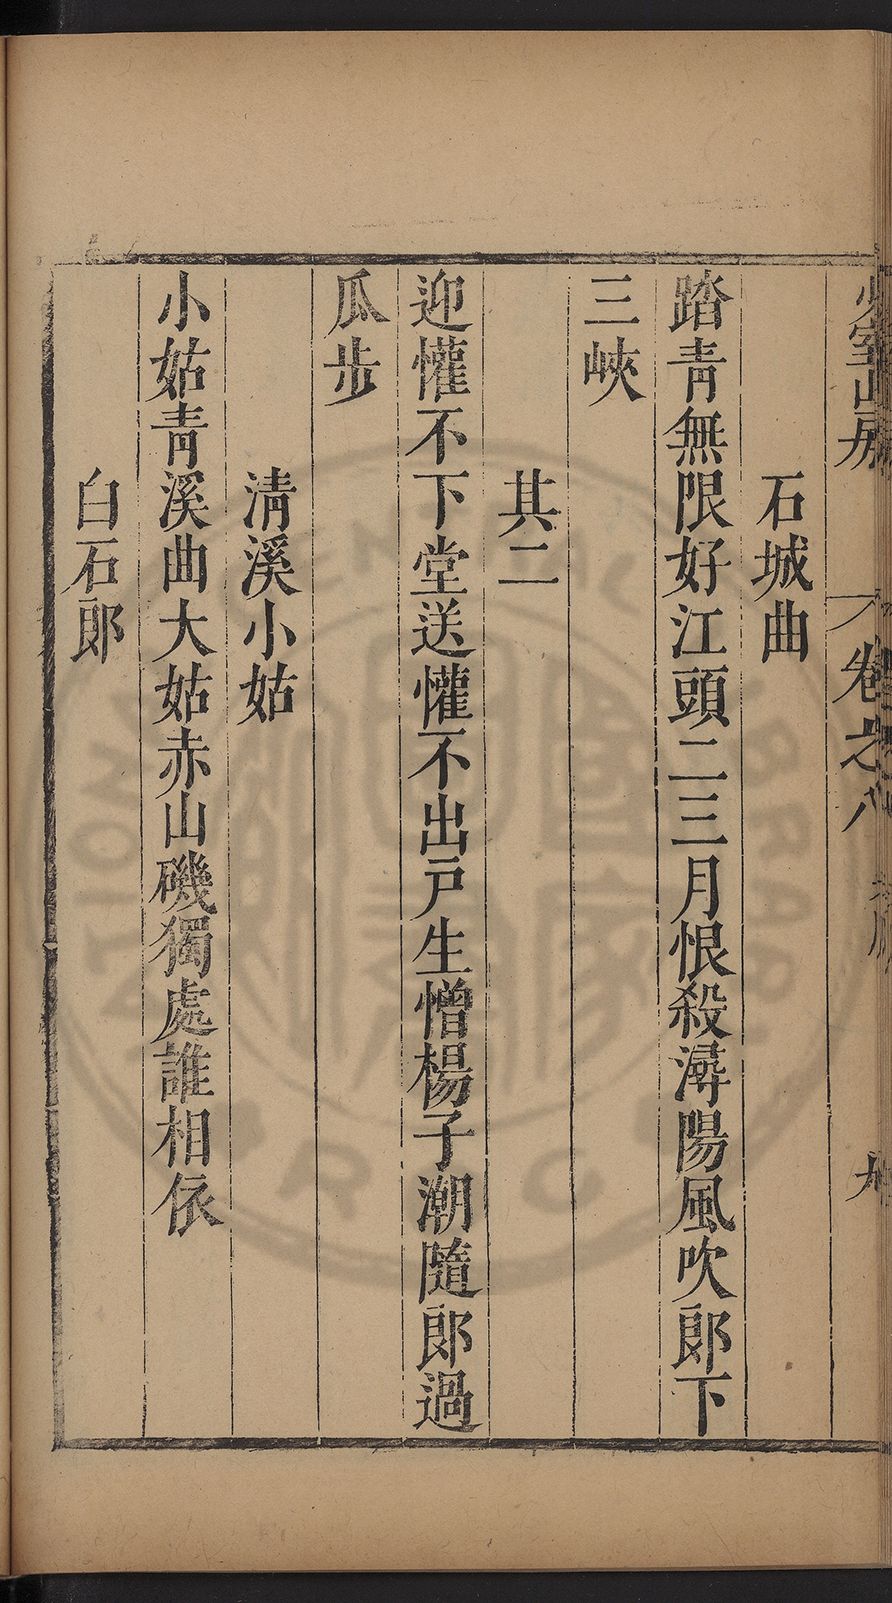 少室山房
卷之八
九
石城曲
踏青無限好江頭二三月恨殺潯陽風吹郎下
三峽
其二
迎懽不下堂送懽不出戸生憎楊子潮隨郎過
瓜步
清溪小姑
小姑青溪曲大姑赤山磯獨處誰相依
白石郎